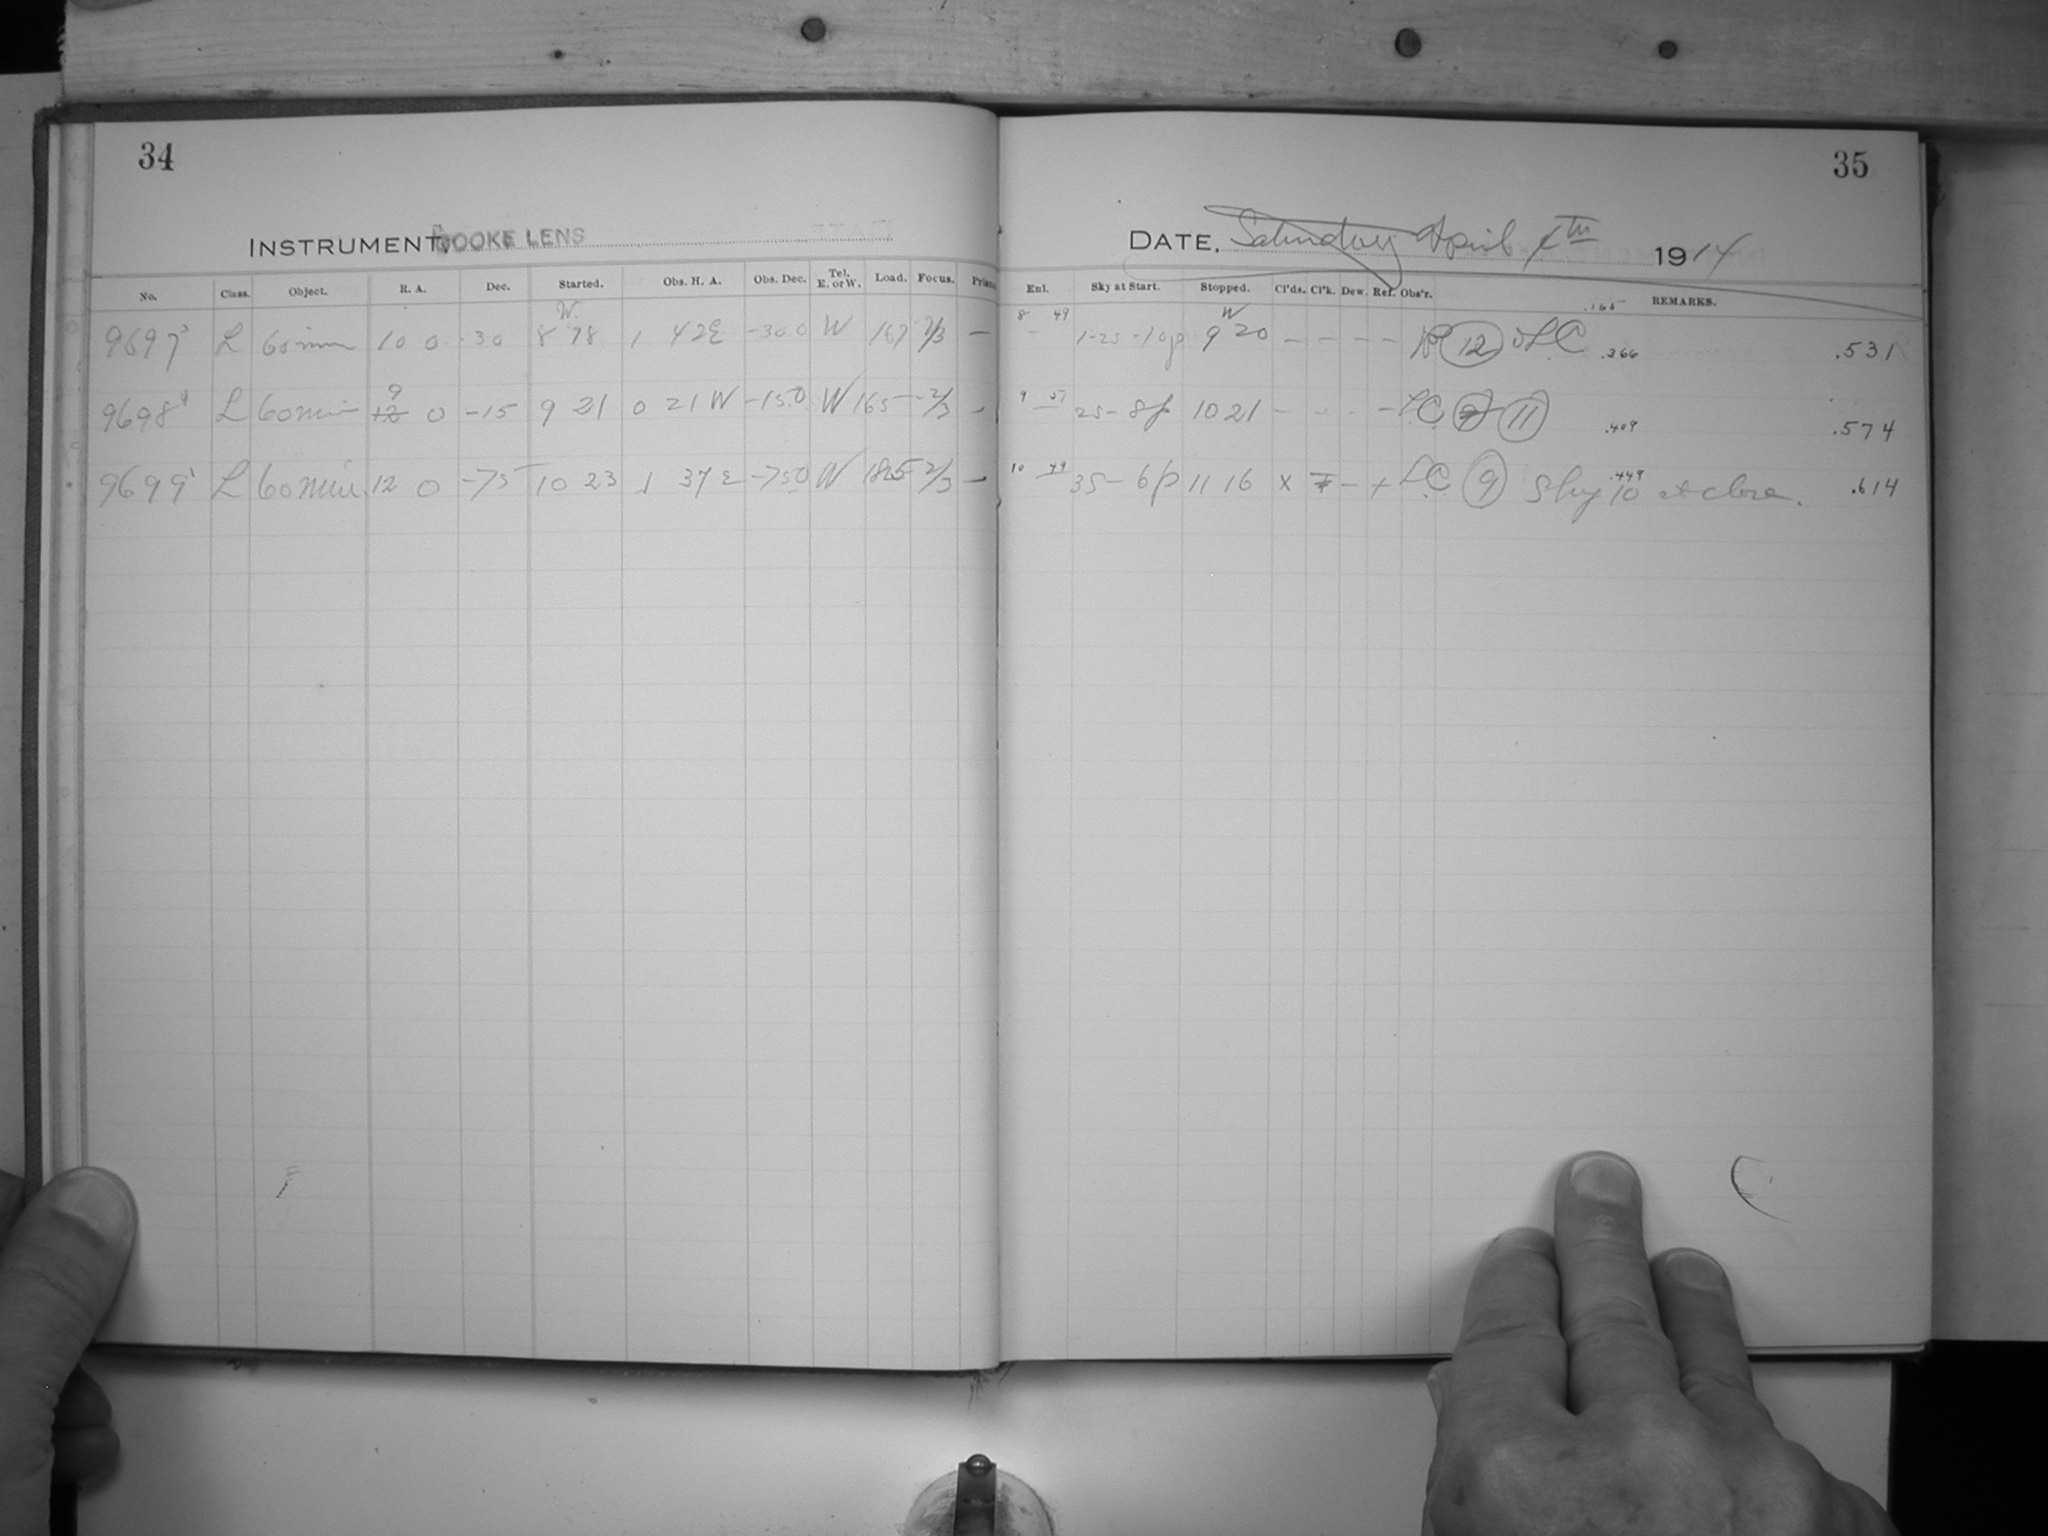 34
INSTRUMENT. COOKE LENS
No. Class. Object. R. A. Dec. Started. Obs. H. A. Obs. Dec. Tel. E. or W. Load. Focus.
W.
9697 L 60 min 10 0 -30 8 1 42 E -30.0 W 167 —
9698 L 60 min 9 12 0 -15 9 21 0 21 W -15.0 W 165 2/3 —
9699 L 60 min 12 0 -75 10 23 1 37 E -75.0 W 2/3 —
35
DATE. Saturday April 4th 1914
Exl. Sky at Start. Stopped. Cl'ds. Cl'k. Dew. Ref. Obs'r. REMARKS.
8 49 1-25-10p W 9 20 — — — — 12 LC .165 .366 .531
9 57 25-8p 10 21 — — — — LC 11 .409 .574
10 49 35-6p 11 16 x — + LC 9 Sky 10 at close. .449 .614